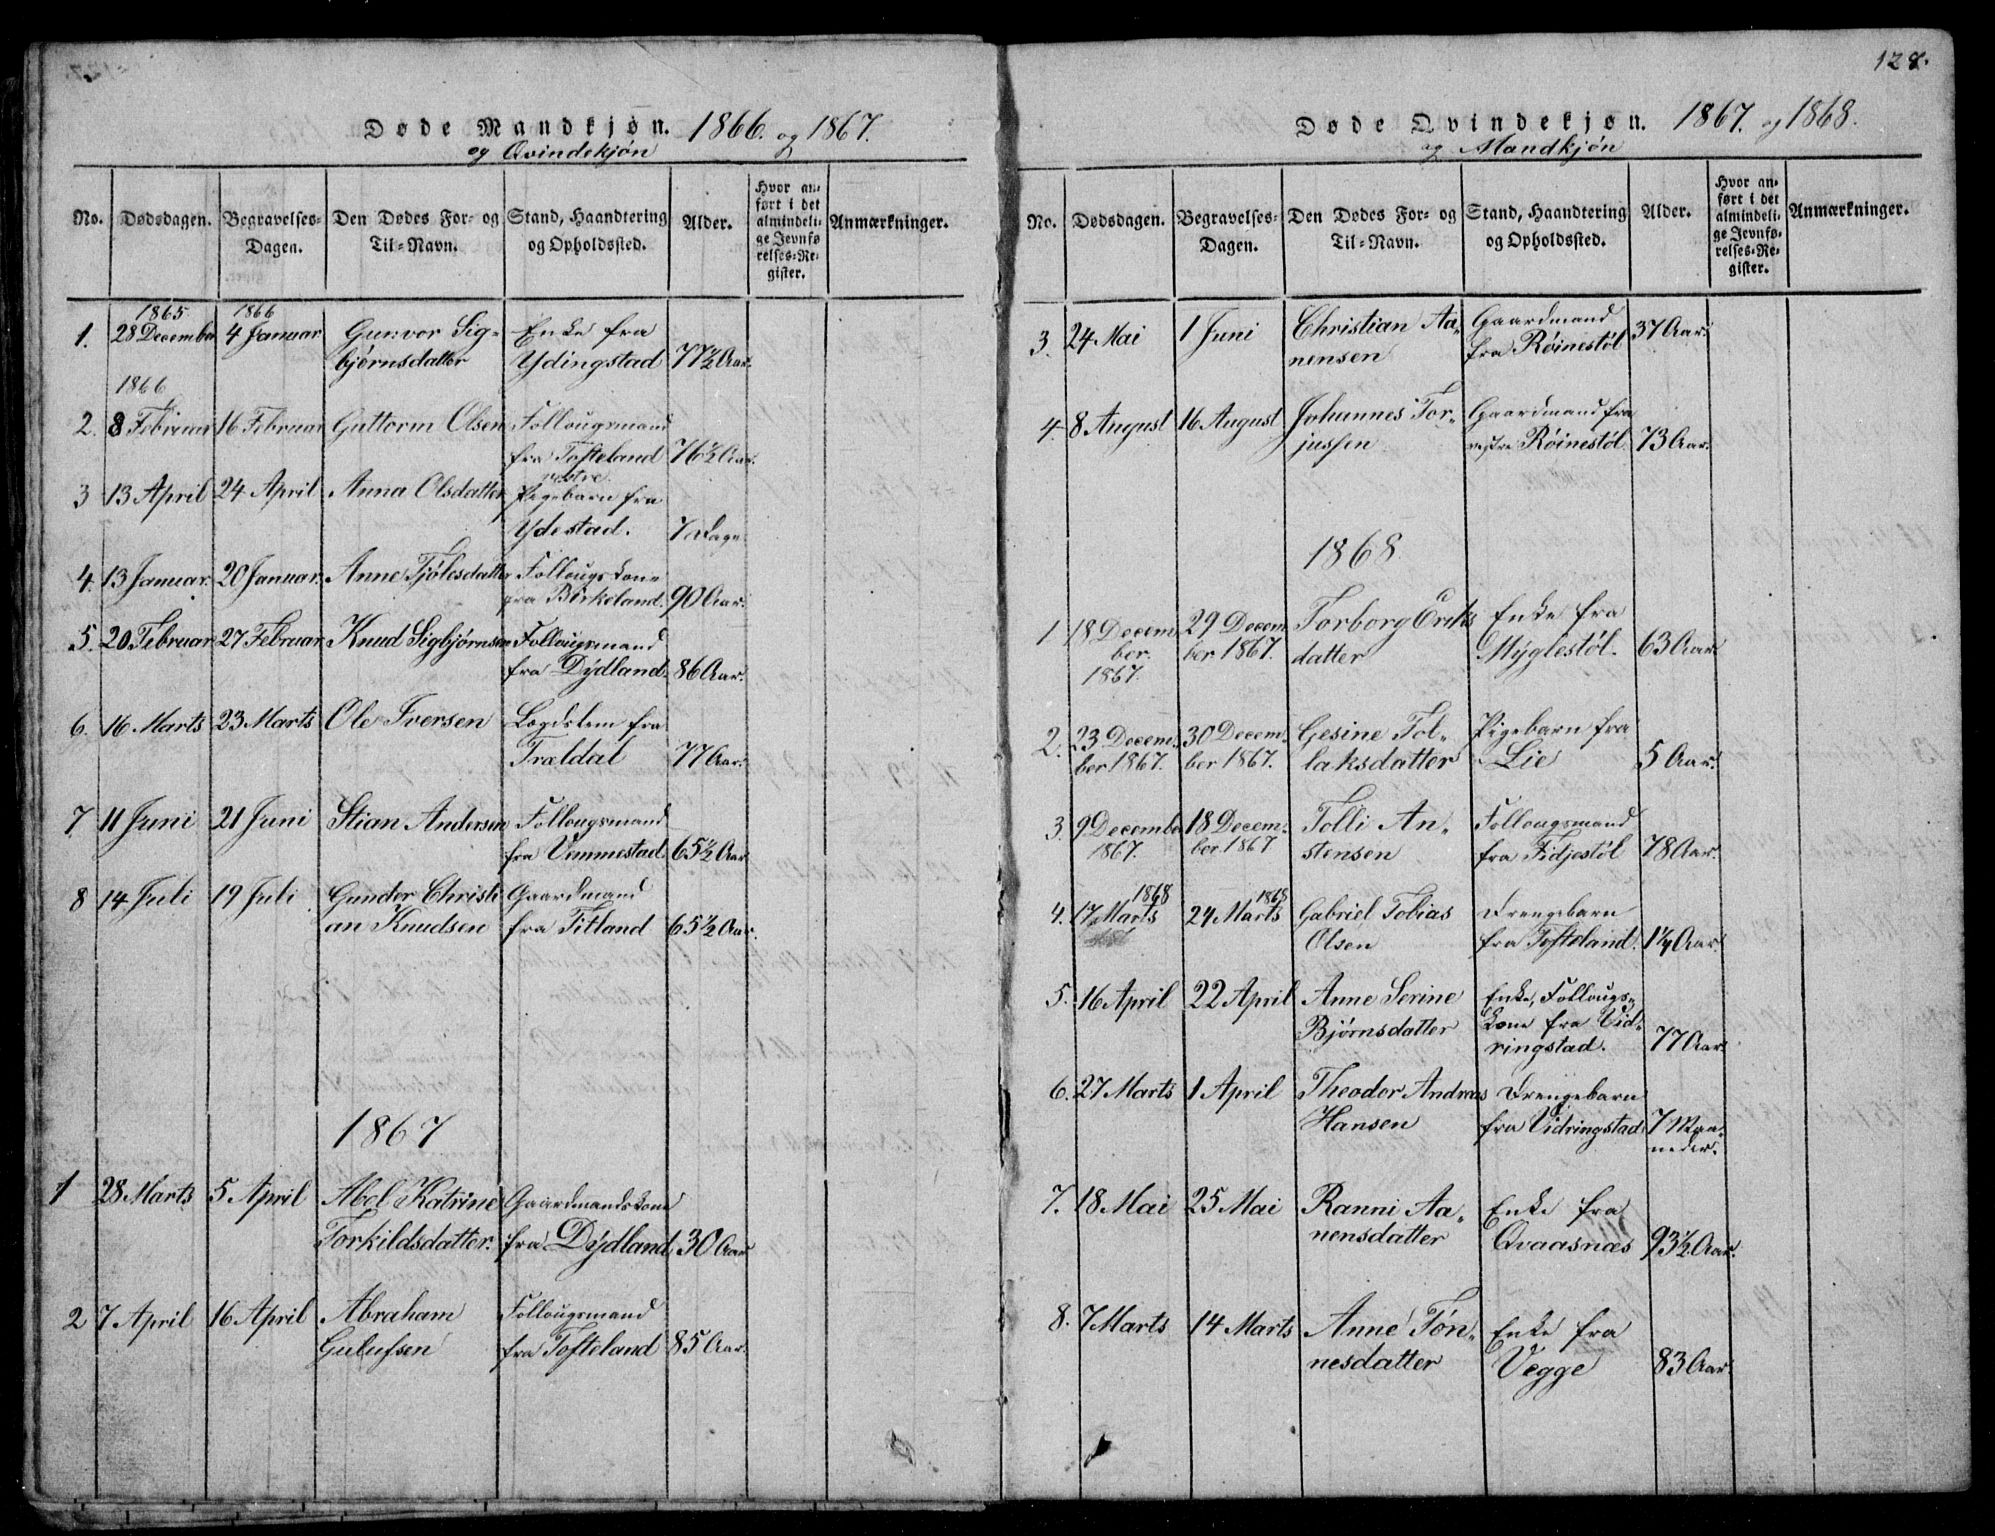 Døde Mandkjøn. 1866. og 1867.
og Qvindekjøn
No. Dødsdagen. Begravelses-Dagen. Den Dødes For- og Til-Navn. Stand, Haandtering og Opholdssted. Alder. Hvor anført i det almindelige Jevnførelses-Register. Anmærkninger.
1865 1866
1. 28 December 4 Januar Gunvor Sig- Enke fra
bjørnsdatter Ydingstad 77½ Aar.
1866
2. 8 Februar 16 Februar Guttorm Olsen Follougsmand
fra Tofteland 76½ Aar.
3 13 April 24 April Anna Olsdatter Pigebarn fra
Ydestad. 7 Dage
4. 13 Januar. 20 Januar. Anne Tjølesdatter Follougskone
fra Birkeland. 90 Aar.
5. 20 Februar 27 Februar Knud Sigbjørnsen Follougsmand
fra Dydland. 86 Aar.
6. 16 Marts 23 Marts Ole Iversen Lægdslem fra
Trældal 77 Aar.
7 11 Juni 21 Juni Stian Andersen Follougsmand
fra Vemmestad 65½ Aar
8 14 Juli 19 Juli Gunder Christi Gaardmand
an Knudsen fra Fitland 65½ Aar.
1867
1 28 Marts 5 April Abel Katrine Gaardmandskone
Torkildsdatter. fra Dydland. 30 Aar
2 7 April 16 April Abraham Follougsmand
Gulufsen fra Tofteland 85 Aar.
128.
Døde Qvindekjøn. 1867. og 1868.
og Mandkjøn
No. Dødsdagen. Begravelses-Dagen. Den Dødes For- og Til-Navn. Stand, Haandtering og Opholdssted. Alder. Hvor anført i det almindelige Jevnførelses-Register. Anmærkninger.
3. 24 Mai 1 Juni Christian Aa- Gaardmand
nensen fra Røinestøl 37 Aar.
4. 8 August 16 August Johannes Tor- Gaardmand fra
jussen vestre Røinestøl 73 Aar.
1868
1 18 Decem 29 Decem Torborg Eriks Enke fra
ber. ber 1867. datter Myglestøl. 63 Aar.
1867.
2. 23 Decem- 30 Decem- Gesine Tol- Pigebarn fra
ber 1867. ber 1867. laksdatter Lie 5 Aar.
3. 9 December 18 Decem- Tolli An- Follougsmand
1867. ber 1867 stensen fra Fidjestøl 78 Aar.
1868 1868
4. 17 Marts 24 Marts Gabriel Tobias Drengebarn
Olsen fra Tofteland. 1¼ Aar
5. 16 April 22 April Anne Serine Enke, Follougs-
Bjørnsdatter kone fra Vid-
ringstad. 77 Aar.
6. 27 Marts 1 April Theodor Andreas Drengebarn
Hansen fra Vidringstad. 7 Maa-
neder.
7. 18 Mai 25 Mai Ranni Aa- Enke fra
nensdatter Qvaasnæs 93½ Aar.
8. 7 Marts 14 Marts Anne Tøn- Enke fra
nesdatter Vegge 83 Aar